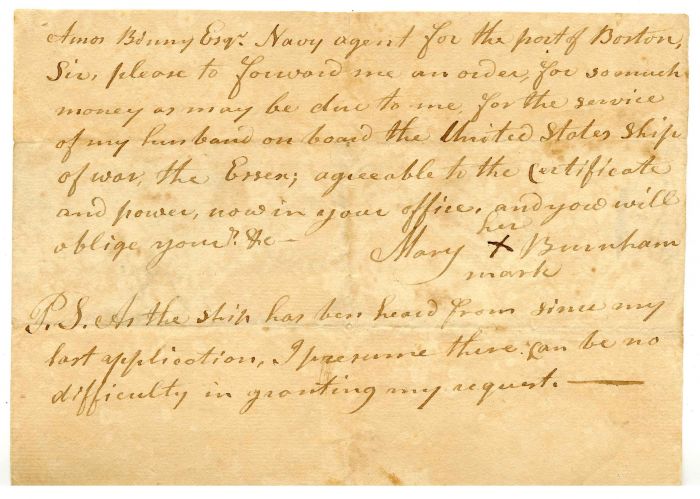 Amos Binny Esqr. Navy agent for the port of Boston,
Sir, please to forward me an order, for so much
money as may be due to me for the service
of my husband on board the United States Ship
of war, the Essex; agreeable to the Certificate
and power, now in your office, and you will
oblige yours. &c —
her
Mary X Burnham
mark
P.S. As the ship has ben heard from since my
last application, I presume there can be no
difficulty in granting my request. —